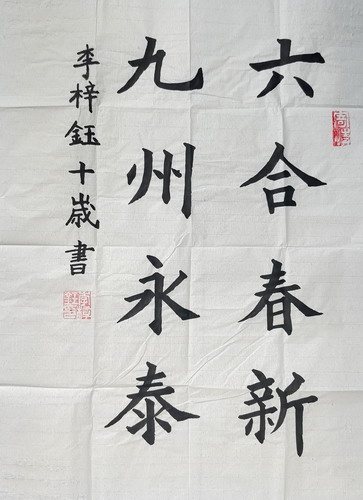 六合春新
九州永泰
李梓鈺十歲書